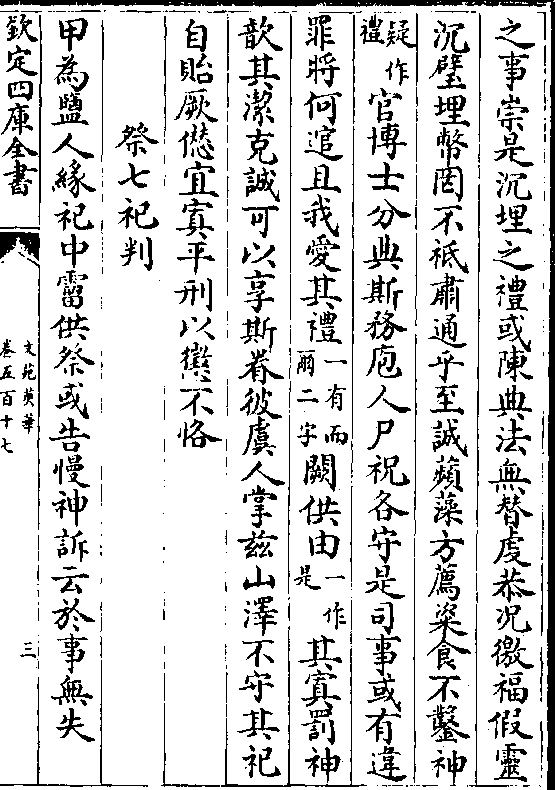 之事崇是沉埋之禮或陳典法無替虔恭况徼福假靈
沉璧埋幣罔不祗肅通乎至誠蘋藻方薦粢食不鑿神
疑作禮官博士分典斯務庖人尸祝各守是司事或有違
罪將何逭且我愛其禮一有而爾二字闕供由一作是其寘罰神
歆其潔克誠可以享斯眷彼虞人掌兹山澤不守其祀
自貽厥愆宜寘平刑以懲不恪
祭七祀判
甲為鹽人緣祀中霤供祭或告慢神訴云於事無失
欽定四庫全書
文苑英華
卷五百十七
三